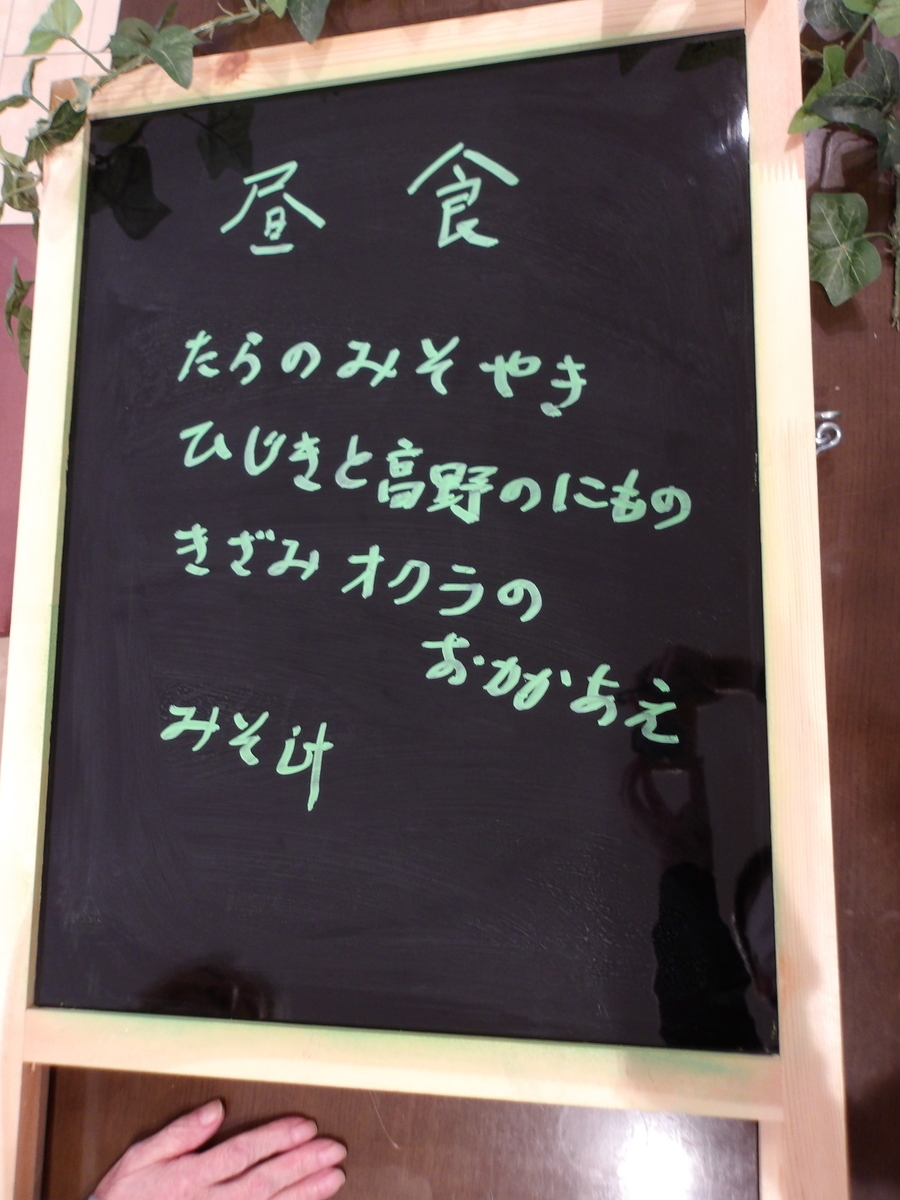 昼食
たらのみそやき
ひじきと高野のにもの
きざみオクラの
おかかあえ
みそ汁